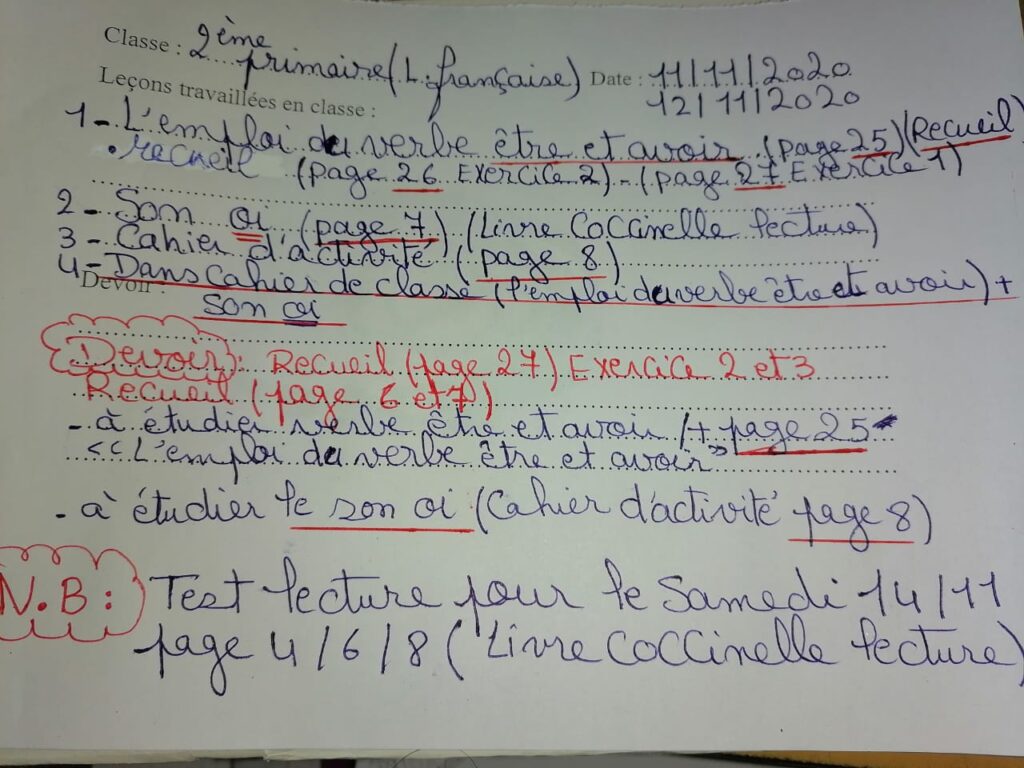 Classe : 2ème
primaire (L. française) Date : 11/11/2020
12/11/2020
Leçons travaillées en classe :
1- L'emploi du verbe être et avoir (page 25) (Recueil)
• recueil (page 26 Exercice 2) - (page 27 Exercice 1)
2 - Son oi (page 7) (Livre Coccinelle lecture)
3 - Cahier d'activité (page 8)
4 - Dans cahier de classe (l'emploi du verbe être et avoir) +
Devoir :
son oi
Devoir : Recueil (page 27) Exercice 2 et 3
Recueil (page 6 et 7)
- à étudier verbe être et avoir /+ page 25
<< L'emploi du verbe être et avoir >>
- à étudier le son oi (Cahier d'activité page 8)
N.B : Test lecture pour le Samedi 14/11
page 4/6/8 (Livre Coccinelle lecture)